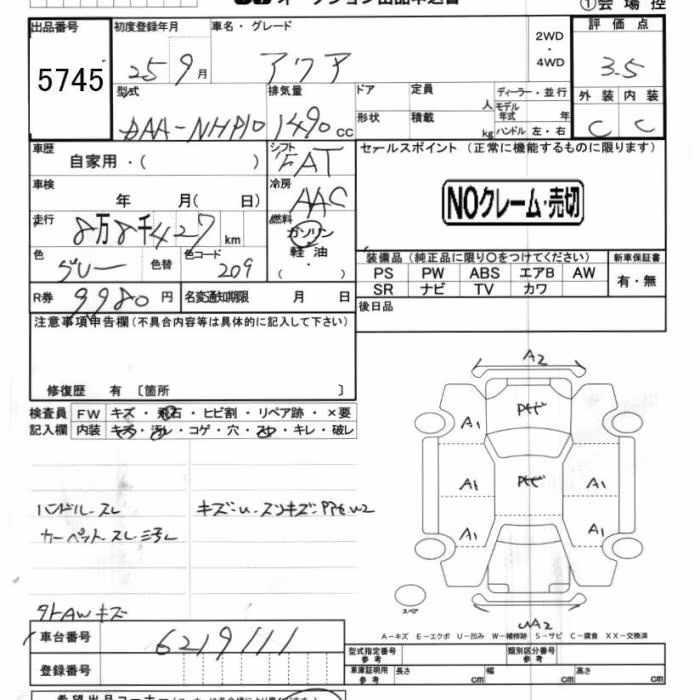 出品番号 初度登録年月 車名・グレード 2WD・4WD 評価点
5745 25 9月 アクア 3.5
型式 排気量 ドア 定員 人 ディーラー・並行 外装 内装
DAA-NHP10 1490 CC 形状 積載 kg モデル年式 年 ハンドル 左・右 C C
車歴 自家用・( ) シフト FAT セールスポイント (正常に機能するものに限ります)
車検 年 月( 日) 冷房 AAC NOクレーム・売切
走行 8万8千427km 燃料 ガソリン 軽油 ・( )
色 グレー 色替 色コード 209
装備品(純正品に限り〇をつけてください) 新車保証書
PS PW ABS エアB AW 有・無
SR ナビ TV カワ
R券 9980円 名変通知期限 月 日 後日品
注意事項申告欄(不具合内容等は具体的に記入して下さい)
修復歴 有 〔箇所 〕
検査員 FW キズ・飛石・ヒビ割・リペア跡・×要
記入欄 内装 キズ・汚レ・コゲ・穴・スレ・キレ・破レ
ハンドル・スレ
カーペット・スレ
外AWキズ
A2
A1
A1 A1
A1 A1
スペア
A2
A-キズ E-エクボ U-凹み W-補修跡 S-サビ C-腐食 XX-交換済
車台番号 6219111
登録番号
型式指定番号 参考 類別区分番号 参考
車庫証明用 参考 長さ cm 幅 cm 高さ cm